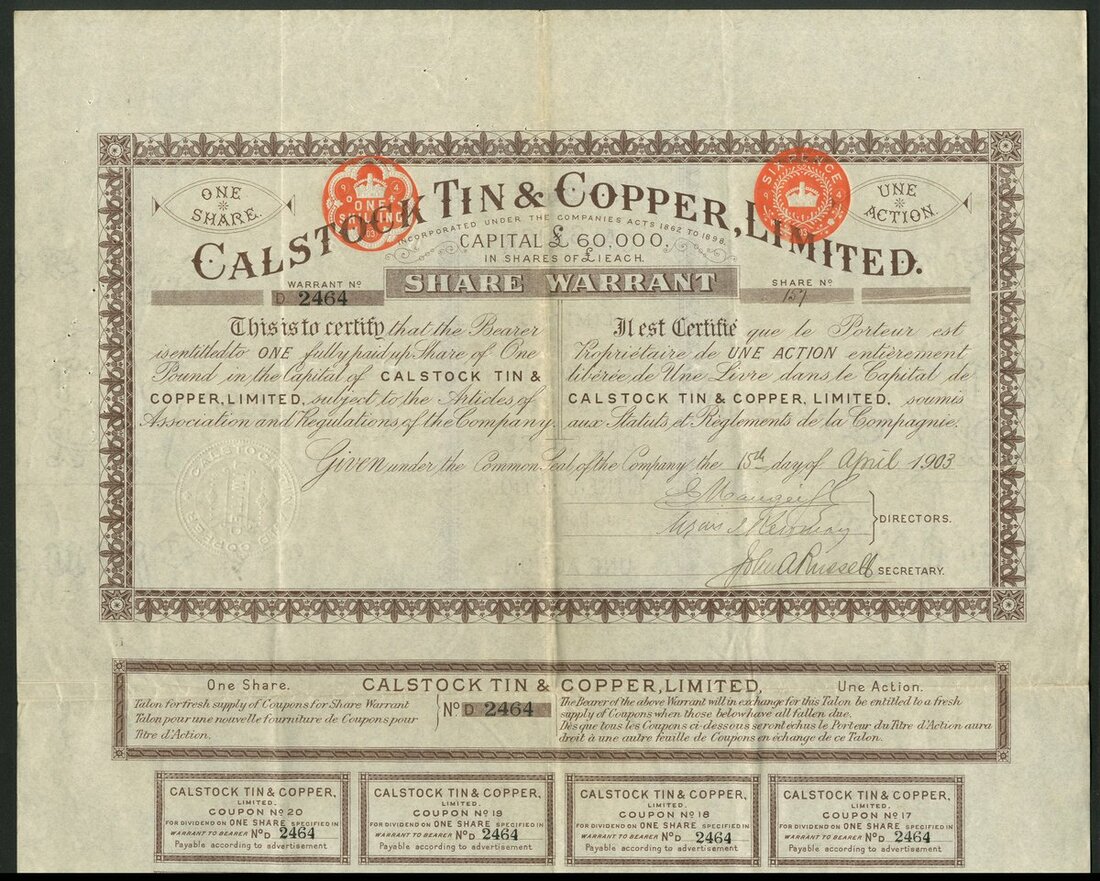 ONE SHARE.
ONE SHILLING
SIXPENCE
UNE ACTION.
CALSTOCK TIN & COPPER, LIMITED.
INCORPORATED UNDER THE COMPANIES ACTS 1862 TO 1898.
CAPITAL £ 60,000.
IN SHARES OF £1 EACH.
SHARE WARRANT
WARRANT No
D 2464
SHARE No
157
This is to certify that the Bearer
is entitled to ONE fully paid up Share of One
Pound in the Capital of CALSTOCK TIN &
COPPER, LIMITED, subject to the Articles of
Association and Regulations of the Company.
Il est Certifié que le Porteur est
Propriétaire de UNE ACTION entièrement
libérée de Une Livre dans le Capital de
CALSTOCK TIN & COPPER, LIMITED, soumis
aux Statuts et Règlements de la Compagnie.
Given under the Common Seal of the Company the 15th day of April 1903
DIRECTORS.
John A Russell SECRETARY.
One Share. CALSTOCK TIN & COPPER, LIMITED, Une Action.
Talon for fresh supply of Coupons for Share Warrant
Talon pour une nouvelle fourniture de Coupons pour
Titre d'Action.
No D 2464
The Bearer of the above Warrant will in exchange for this Talon be entitled to a fresh
supply of Coupons when those below have all fallen due.
Dès que tous les Coupons ci-dessous seront échus le Porteur du Titre d'Action aura
droit à une autre feuille de Coupons en échange de ce Talon.
CALSTOCK TIN & COPPER,
LIMITED.
COUPON No 20
FOR DIVIDEND ON ONE SHARE SPECIFIED IN
WARRANT TO BEARER No D 2464
Payable according to advertisement
CALSTOCK TIN & COPPER,
LIMITED.
COUPON No 19
FOR DIVIDEND ON ONE SHARE SPECIFIED IN
WARRANT TO BEARER No D 2464
Payable according to advertisement
CALSTOCK TIN & COPPER,
LIMITED.
COUPON No 18
FOR DIVIDEND ON ONE SHARE SPECIFIED IN
WARRANT TO BEARER No D 2464
Payable according to advertisement
CALSTOCK TIN & COPPER,
LIMITED.
COUPON No 17
FOR DIVIDEND ON ONE SHARE SPECIFIED IN
WARRANT TO BEARER No D 2464
Payable according to advertisement